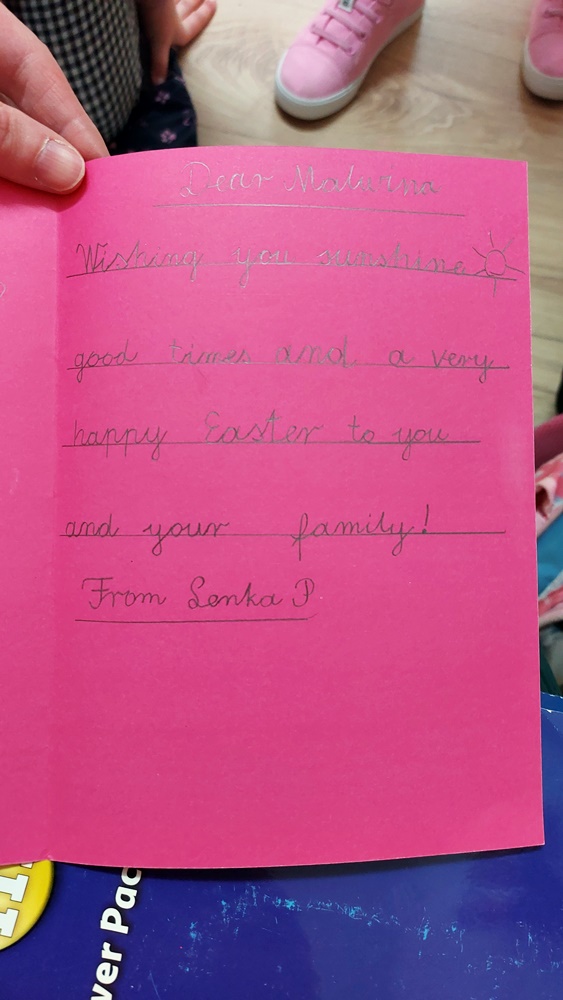 Dear Maturna
Wishing you sunshine
good times and a very
happy Easter to you
and your family!
From Lenka P
ver Pac